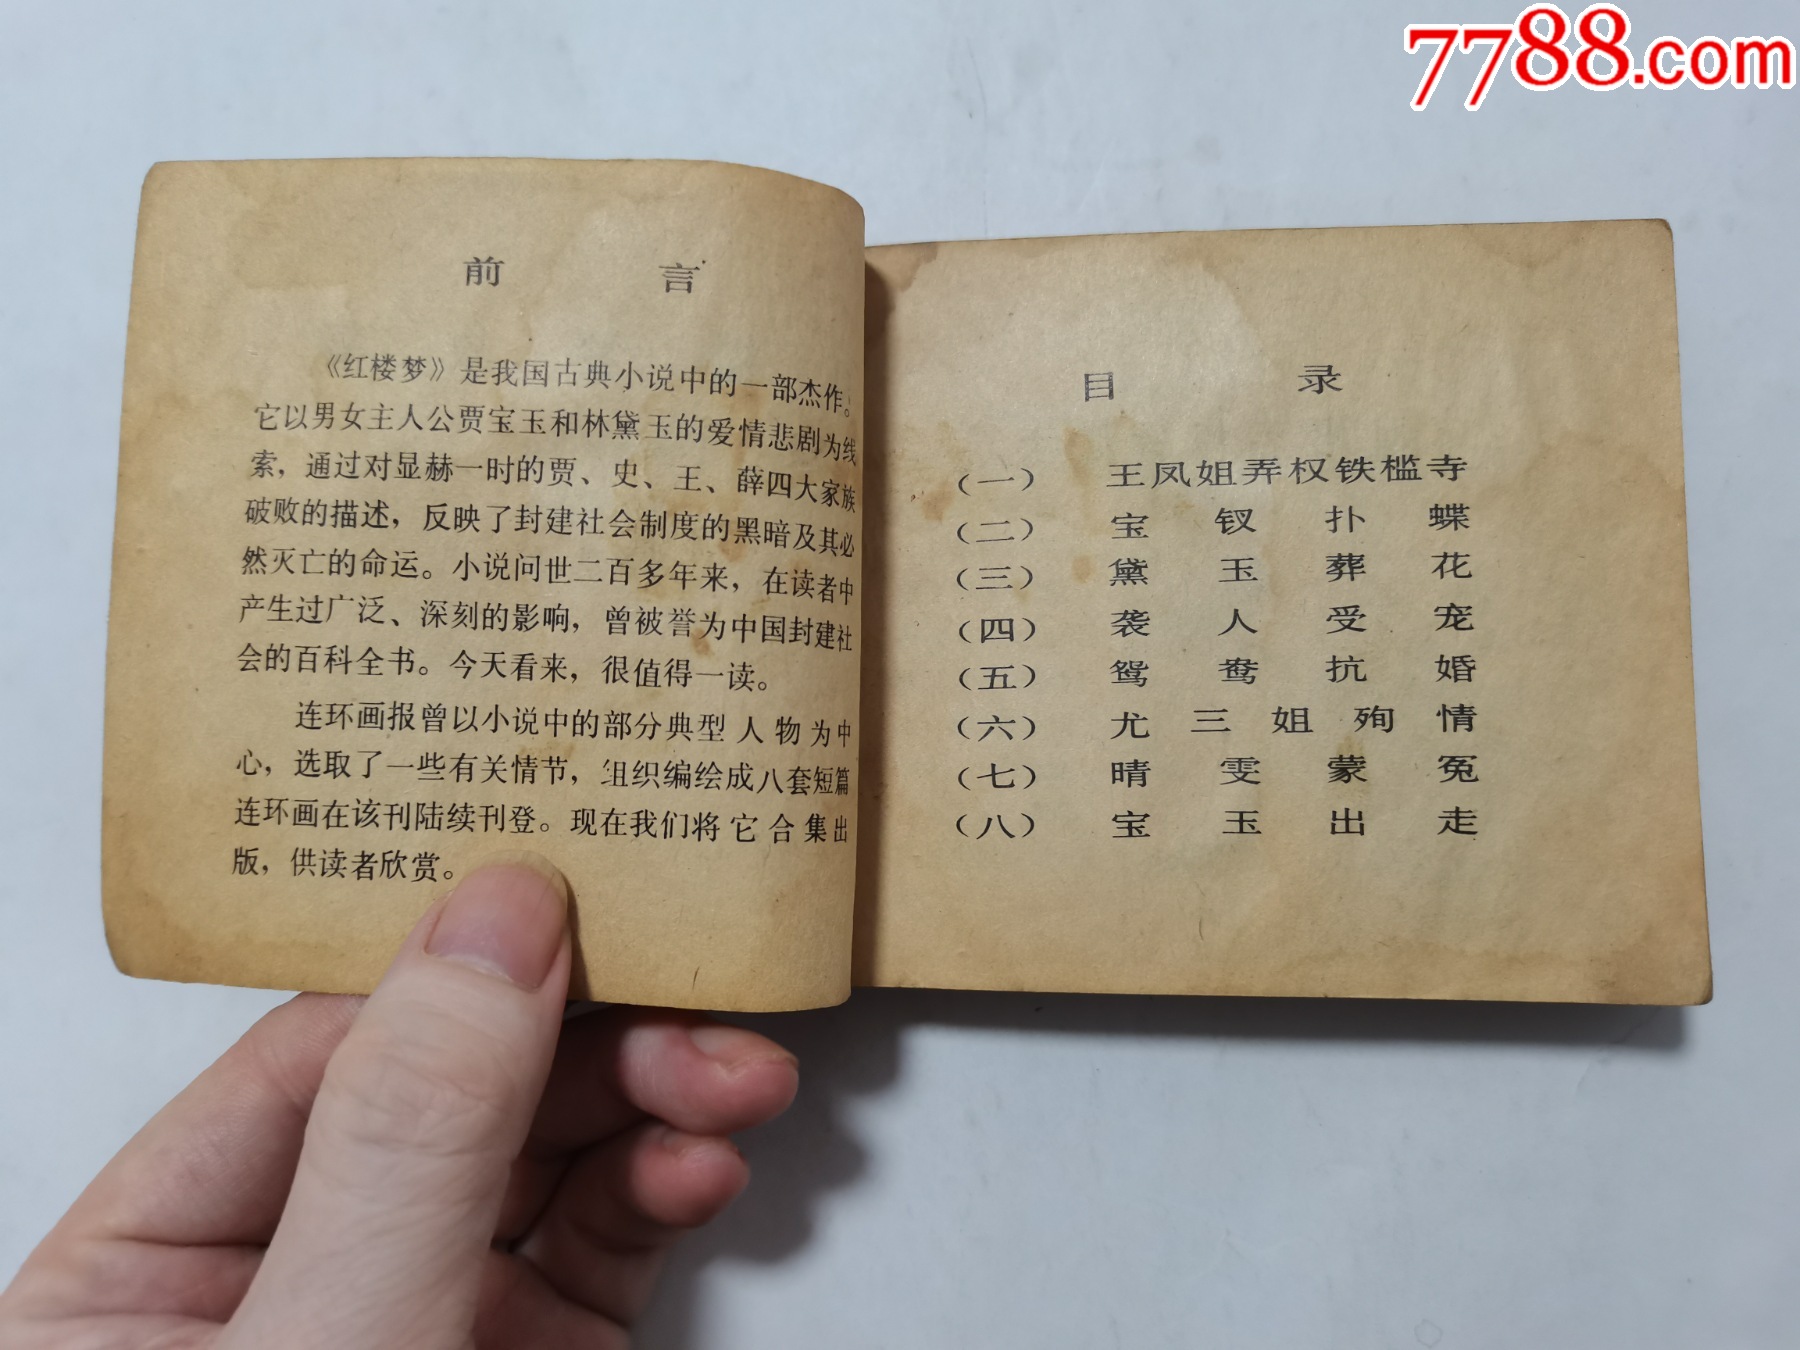 7788.com
前言
《红楼梦》是我国古典小说中的一部杰作。
它以男女主人公贾宝玉和林黛玉的爱情悲剧为线
索，通过对显赫一时的贾、史、王、薛四大家族
破败的描述，反映了封建社会制度的黑暗及其必
然灭亡的命运。小说问世二百多年来，在读者中
产生过广泛、深刻的影响，曾被誉为中国封建社
会的百科全书。今天看来，很值得一读。
连环画报曾以小说中的部分典型人物为中
心，选取了一些有关情节，组织编绘成八套短篇
连环画在该刊陆续刊登。现在我们将它合集出
版，供读者欣赏。
目录
（一） 王凤姐弄权铁槛寺
（二） 宝钗扑蝶
（三） 黛玉葬花
（四） 袭人受宠
（五） 鸳鸯抗婚
（六） 尤三姐殉情
（七） 晴雯蒙冤
（八） 宝玉出走